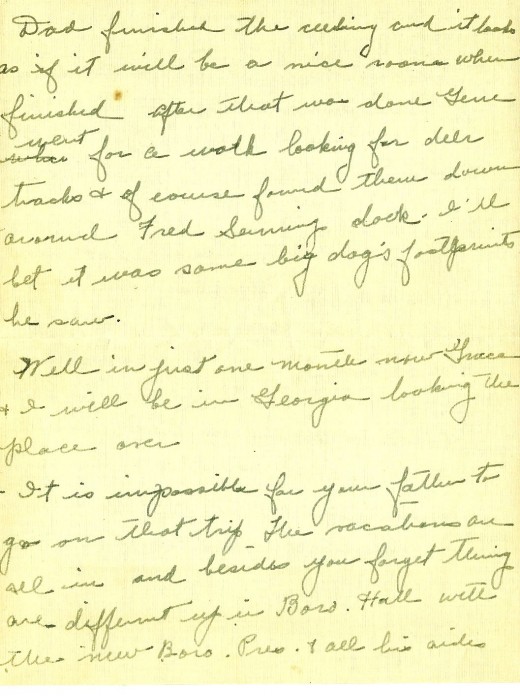 Dad finished the ceeling and it looks
as if it will be a nice room when
finished after that was done Gene
went for a walk looking for deer
tracks & of course found them down
around Fred Sennings dock. I'll
bet it was some big dog's footprints
he saw.
Well in just one month now Grace
& I will be in Georgia looking the
place over
- It is impossible for your father to
go on that trip The vacations are
all in and besides you forget thing
are different up in Boro. Hall with
the new Boro. Pres. & all his aides